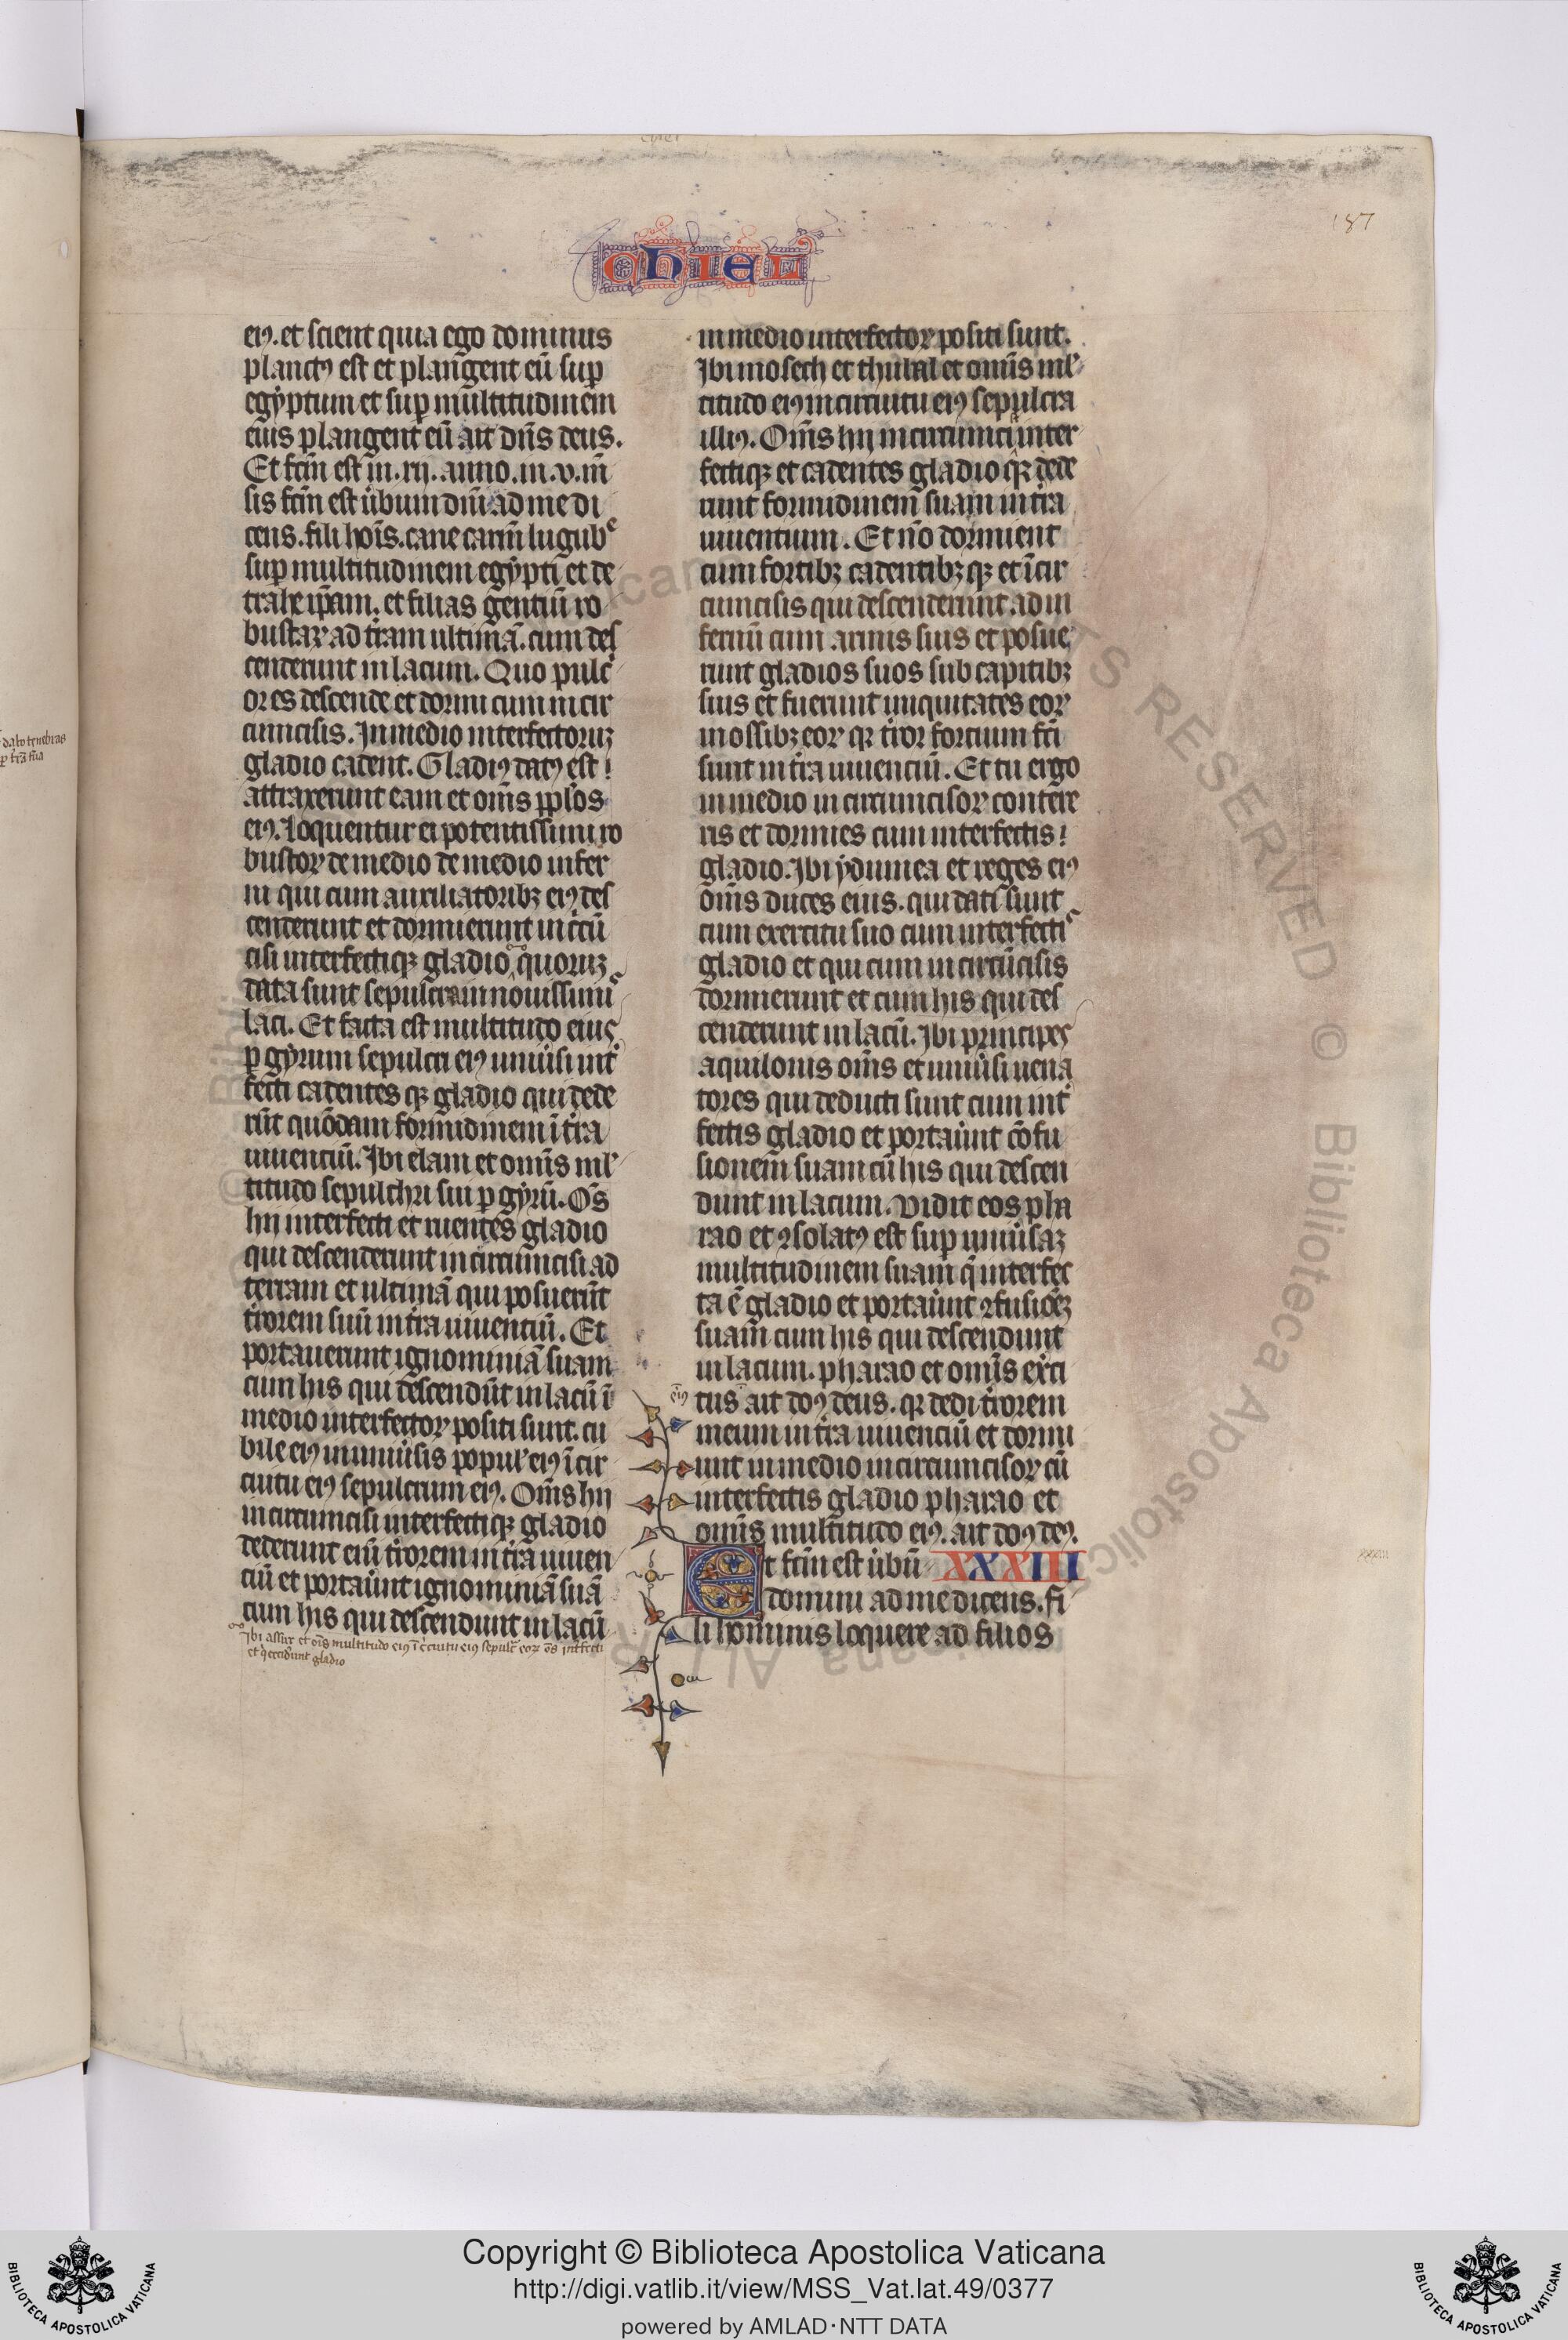 187
chiel
eiꝰ. et scient quia ego dominus
planctꝰ est et plangent eū suꝑ
egyptum et suꝑ multitudinem
eius plangent eū ait dn̄s deus.
Et fc̄m est in .xij. anno .in .v. m̄
sis fc̄m est ūbum dn̄i ad me di
cens. fili hoīs. cane carm̄ lugubᵉ
suꝑ multitudinem egypti et de
trahe ip̄am. et filias gentiū ro
bustaꝝ ad tr̄am ultimā. cum des
cenderunt in lacum. Quo pulc̄
or es descende et dormi cum in cir
cuncisis. In medio interfectoruꝫ
gladio cadent. Gladiꝰ datꝰ est
attraxerunt eam et om̄s pplōs
eiꝰ. Loquentur ei potentissimi ro
bustoꝝ de medio de medio infer
ni qui cum auxiliatoribꝫ eiꝰ des
cenderunt et dormierunt in c̄cū
cisi interfectiqꝫ gladio quoruꝫ
data sunt sepulcra in nouissimiˢ
laci. Et facta est multitudo eius
ꝑ gyrum sepulcri eiꝰ uniūsi int̄
fecti cadentes qꝫ gladio qui dede
rūt quōdam formidinem ī tr̄a
uiuenciū. Ibi elam et omīs ml̄
titudo sepulchri sui ꝑ gyrū. Om̄s
hij interfecti et ruentes gladio
qui descenderunt in circuncisi ad
terram et ultimā qui posuerūt
tr̄orem suū in tr̄a uiuenciū. Et
portauerunt ignominiā suam
cum his qui descendūt in lacū ī
medio interfectoꝝ positi sunt. cu
bile eiꝰ in uniūsis populˢ eiꝰ ī cir
cuitu eiꝰ sepulcrum eiꝰ. Om̄s hij
in circuncisi interfectiqꝫ gladio
dederunt enī tr̄orem in tr̄a uiuen
ciū et portaūunt ignominiā suā
cum his qui descendunt in lacū
Ibi assur et oīs multitudo eiꝰ ī c̄cuitu eiꝰ sepulc̄ eoꝝ oēs int̄fecti
et q̄ cecidūnt gladio
in medio interfectoꝝ positi sunt.
Ibi mosech et thubal et omīs ml̄
titudo eiꝰ in circuitu eiꝰ sepulcra
illiꝰ. Om̄s hij in circuncisi inter
fectiqꝫ et cadentes gladio qꝛ dede
runt formidinem suam in tr̄a
uiuentium. Et nō dormient
cum fortibꝫ cadentibꝫ qꝫ et ī cir
cuncisis qui descenderunt ad in
fernū cum armis suis et posue
runt gladios suos sub capitibꝫ
suis et fuerunt iniquitates eoꝝ
in ossibꝫ eoꝝ qꝛ tr̄or fortium fc̄i
sunt in tr̄a uiuenciū. Et tu ergo
in medio in circuncisoꝝ contere
ris et dormies cum interfectis
gladio. Ibi ydumea et reges eiꝰ
om̄s duces eius. qui dati sunt
cum exercitu suo cum interfectiˢ
gladio et qui cum in circūcisis
dormierunt et cum his qui des
cenderunt in lacū. Ibi principes
aquilonis om̄s et uniūsi uena
tores qui deducti sunt cum int̄
fectis gladio et portaūunt cōfu
sionem suam cū his qui descen
dunt in lacum. Vidit eos pha
rao et ꝯsolatꝰ est suꝑ uniūsaꝫ
multitudinem suam q̄ interfec
ta ē gladio et portaūunt ꝯfusiōeꝫ
suam cum his qui descendunt
in lacum. pharao et omīs ex̄ci
tus eiꝰ ait doꝰ deus. qꝛ dedi tr̄orem
meum in tr̄a uiuenciū et dormi
unt in medio in circuncisoꝝ cū
interfectis gladio pharao et
omīs multitudo eiꝰ. ait doꝰ deꝰ.
Et fc̄m est ūbū XXXIII
domini ad me dicens. fi
li hominis loquere ad filios
xxxiii
Copyright © Biblioteca Apostolica Vaticana
http://digi.vatlib.it/view/MSS_Vat.lat.49/0377
powered by AMLAD·NTT DATA
BIBLIOTECA APOSTOLICA VATICANA
BIBLIOTECA APOSTOLICA VATICANA